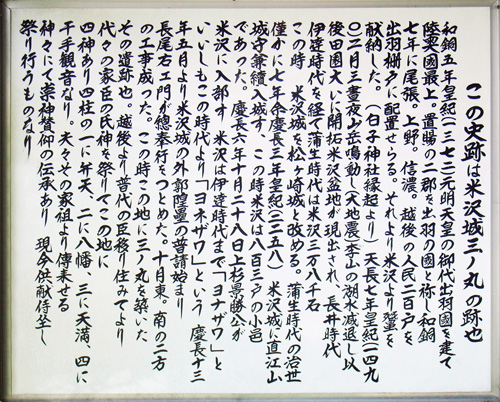 この史跡は米沢城三ノ丸の跡也
和銅五年皇紀(一三七二)元明天皇の御代出羽国を建て
陸奥國最上。置賜の二郡を出羽の國と称し和銅
七年に尾張。上野。信濃。越後の人民二百戸を
出羽柵戸に配置せらる。それより米沢より蚕を
献納した。(白子神社縁起より)天長七年皇紀(一四九
〇)二月三昼夜山岳鳴動し(大地震)李山の湖水減退し以
後田圃大いに開拓米沢盆地が現出され、長井時代
伊達時代を経て蒲生時代は米沢三万八千石
この時 米沢城を松ヶ崎城と改める。蒲生時代の治世
僅かに七年余慶長三年皇紀(二二五八) 米沢城に直江山
城守兼續入城す、この時米沢は八百三戸の小邑
であった。慶長六年十月二十八日上杉景勝公が
米沢に入部す 米沢は伊達時代まで「ヨナザワ」と
いいしもこの時代より「ヨネザワ」という 慶長十三
年五月より米沢城の外郭隍壘の普請始まり
長尾右エ門が總奉行をつとめた。十月東。南の二方
の工事成った。この時この地に三ノ丸を築いた
その遺跡也。越後より普代の臣移り住みてより
代々の家臣の氏神を祭りてこの地に
四神あり四柱の一に弁天、二に八幡、三に天満、四に
千手観音なり。夫々その家祖より傳来せる
神々にて崇神賛仰の伝承あり 現今供献侍坐し
祭り行うものなり